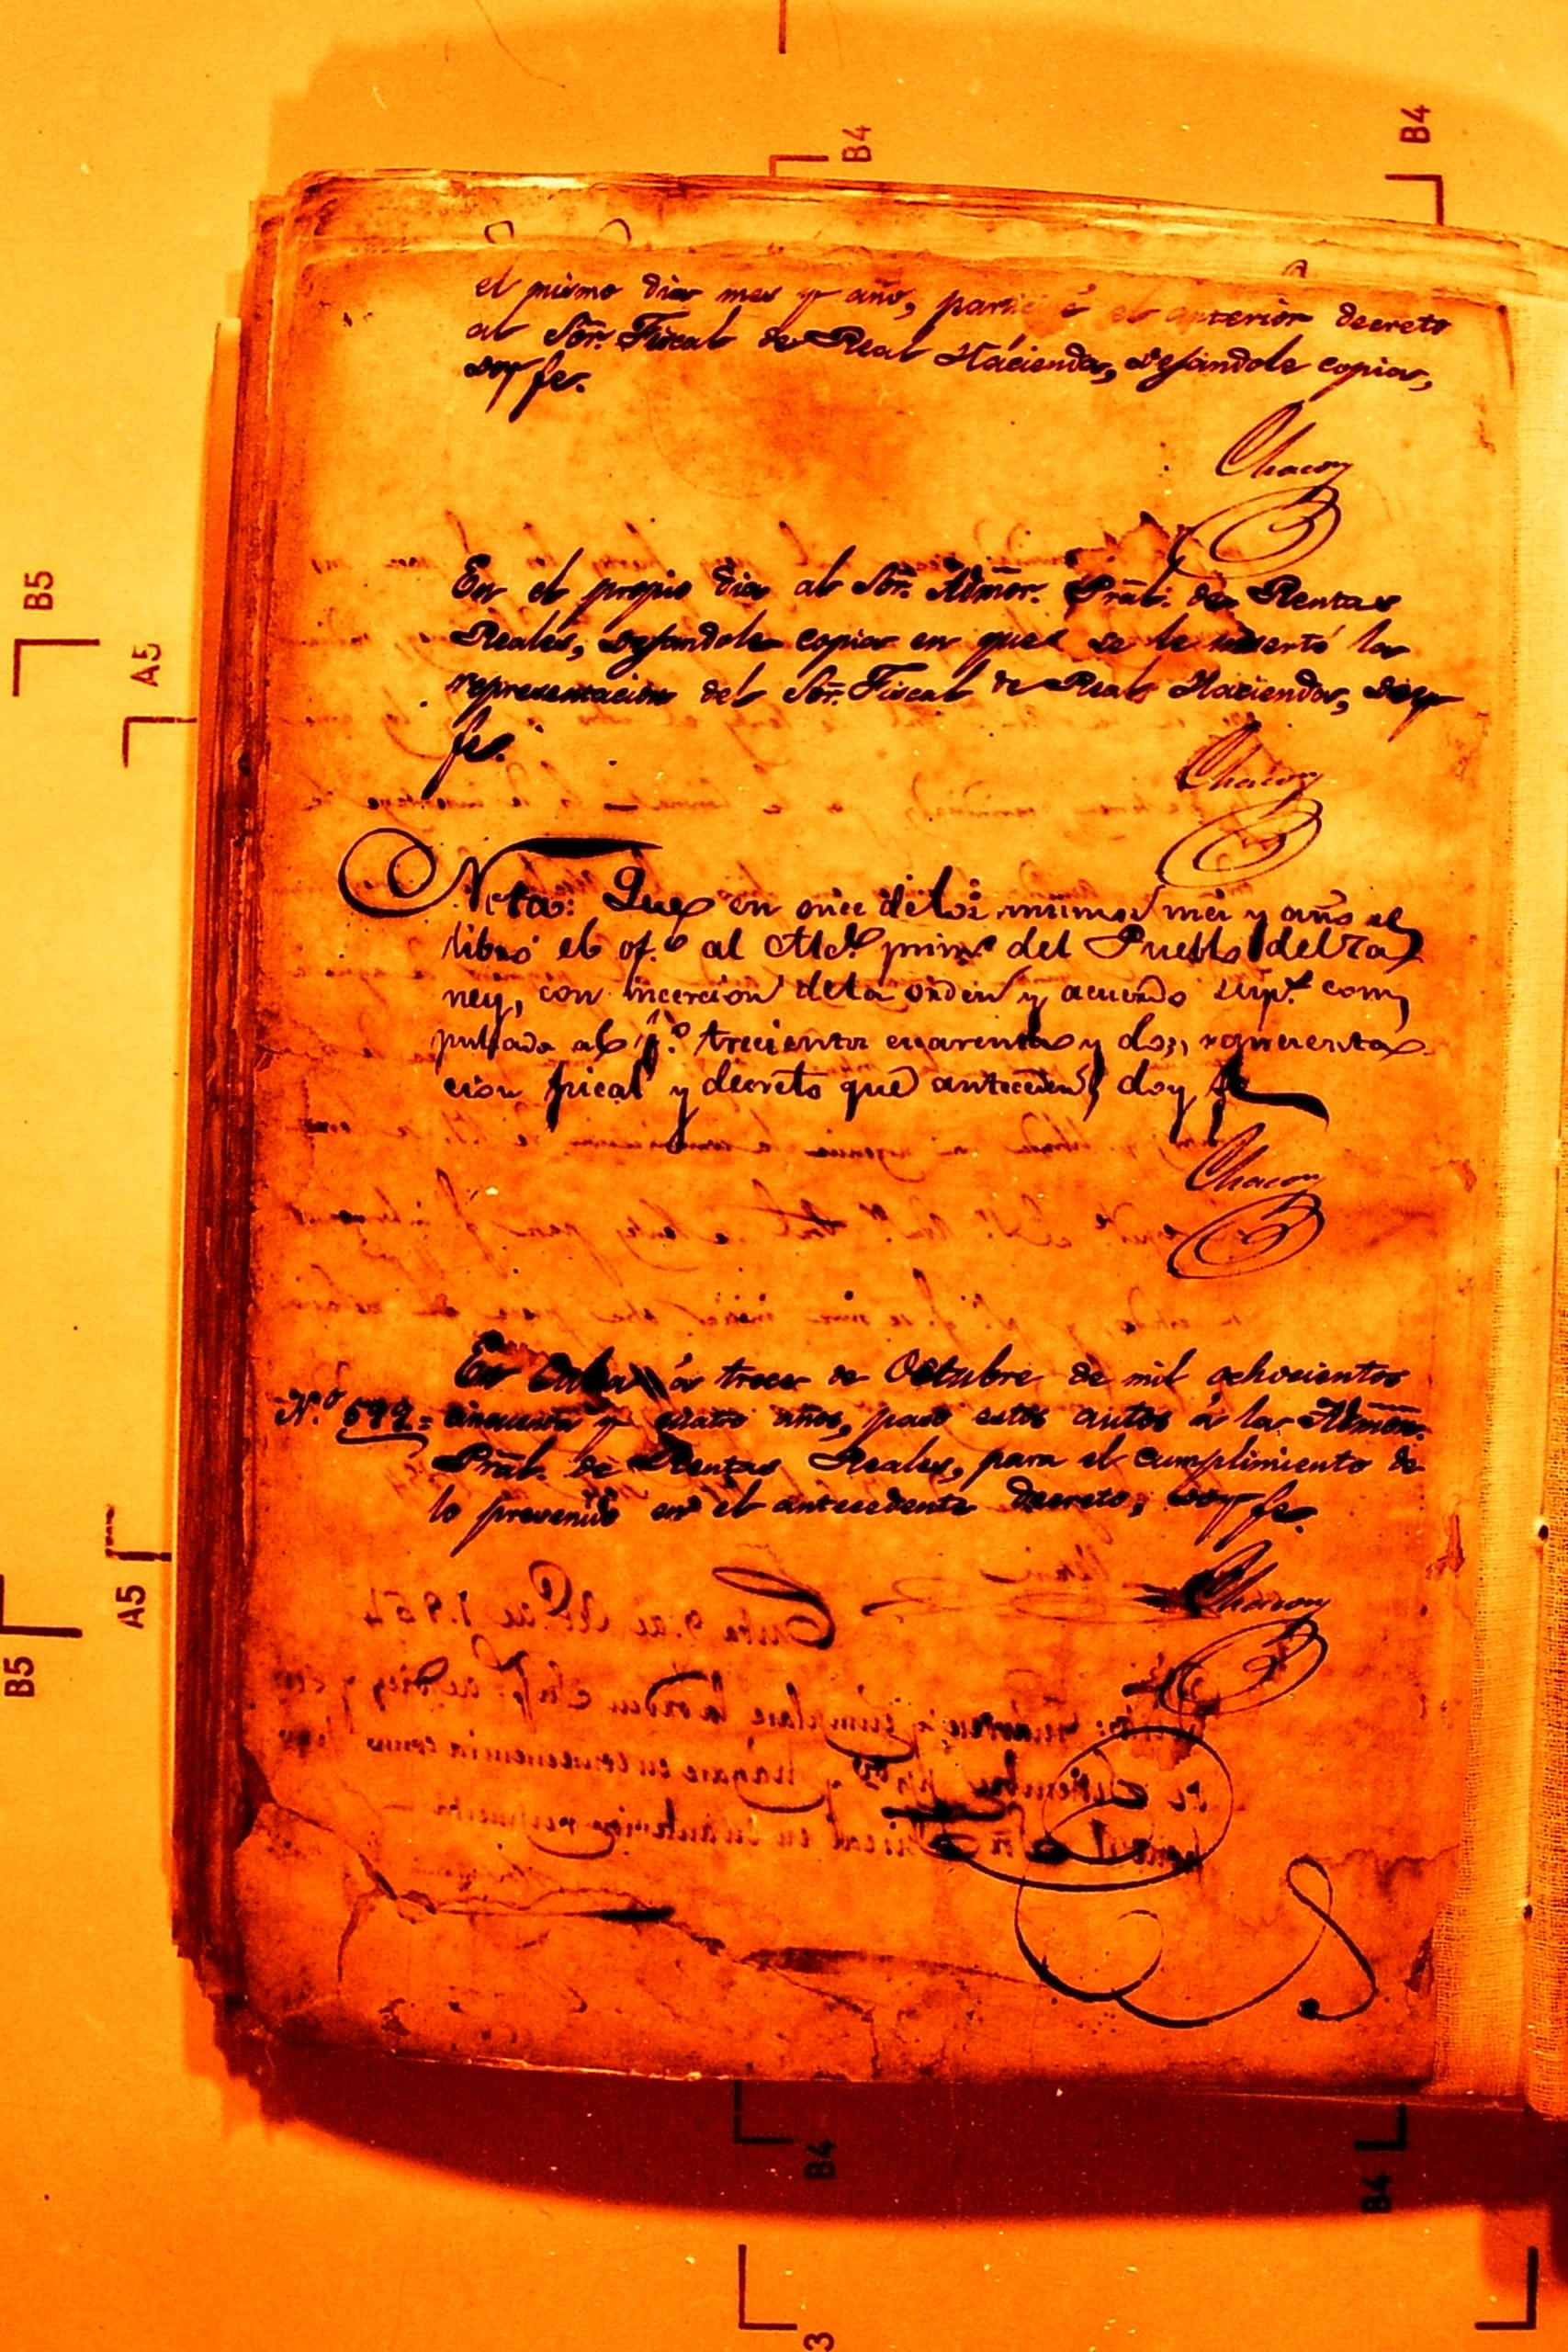 el mismo dia mes y año, el anterior decreto
al Sōr. Fiscal de Real Hacienda, dejandole copia,
doy fe.
Chacon
En el propio dia al Sōr. Admōr. Prāl. de Rentas
Reales, dejandole copia en que se le insertó la
representacion del Sōr. Fiscal de Real Hacienda, doy
fe.
Chacon
Nota: Que en once de los mismos mes y año se
libró el of.º al Alc.e prim.º del Pueblo del Ca
ney, con incercion de la orden y acuerdo sup.r com
pulsada al f.º trecientos cuarenta y dos, representa
cion fiscal y decreto que anteceden, doy fe
Chacon
En Cuba á trece de Octubre de mil ochocientos
N.º = cincuenta y cuatro años, pasé estos autos á la Admōn.
Prāl. de Rentas Reales, para el cumplimiento de
lo prevenido en el antecedente decreto, doy fe.
Chacon
B4
B4
B5
A5
A5
B5
B4
B4
3